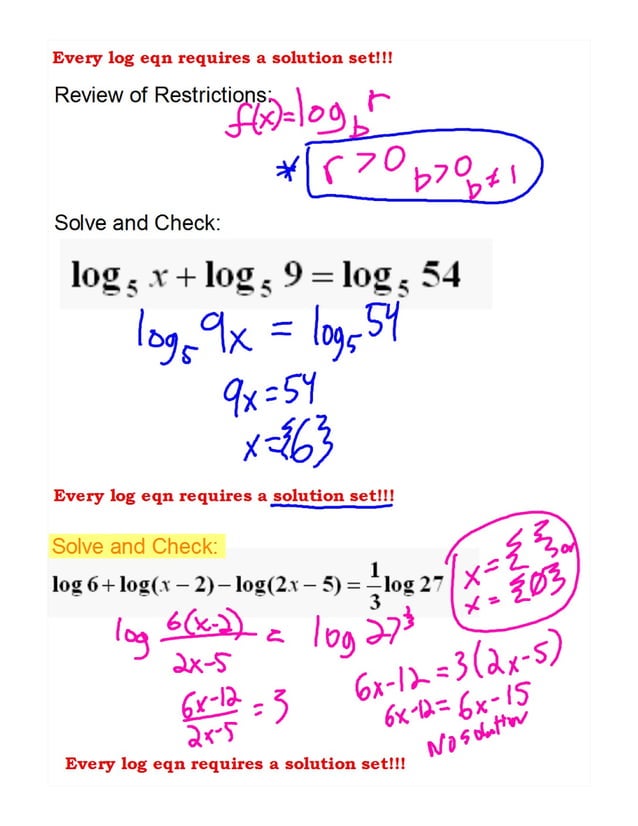 Every log eqn requires a solution set!!!
Review of Restrictions:
f(x)=log_b r
* r>0 b>0 b≠1
Solve and Check:
log₅ x + log₅ 9 = log₅ 54
log₅ 9x = log₅ 54
9x=54
x={6}
Every log eqn requires a solution set!!!
Solve and Check:
log 6 + log(x − 2) − log(2x − 5) = 1/3 log 27
x={ } or
x={∅}
log 6(x-2)/2x-5 = log 27^1/3
6x-12/2x-5 = 3
6x-12=3(2x-5)
6x-12=6x-15
No solution
Every log eqn requires a solution set!!!